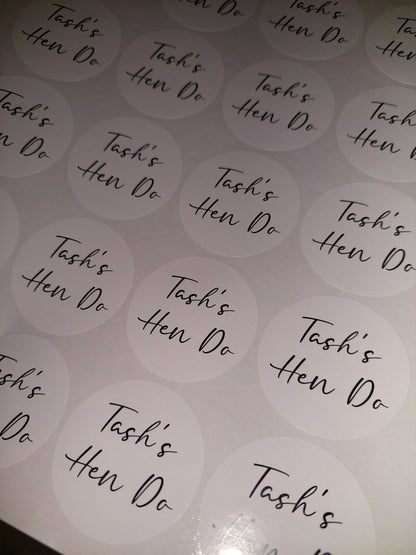 Tash's
Hen Do
Hen Do
Tash's
Hen Do
Hen
Tash's
Hen Do
Tash's
Hen Do
Hen
Do
Tash's
Hen Do
Tash's
Hen Do
Tash's
Hen Do
Tash's
Hen Do
Tash's
Hen Do
Tash's
Hen Do
Do
Tash's
Hen Do
Tash's